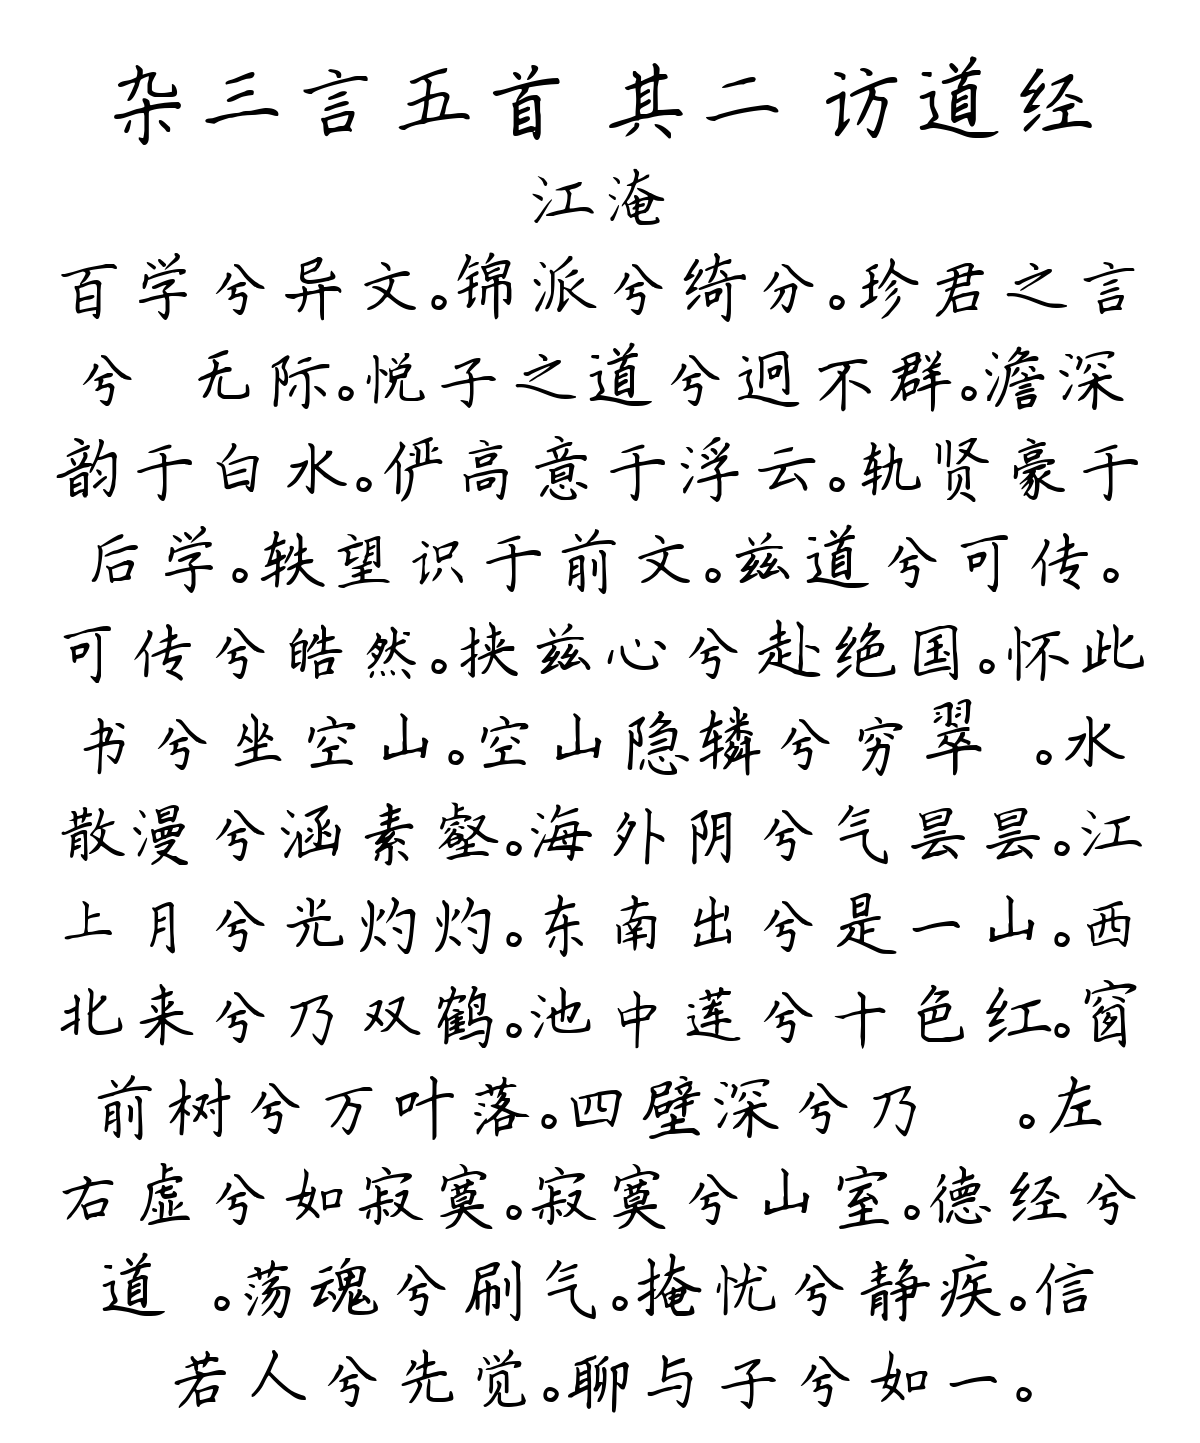 杂三言五首 其二 访道经
江淹
百学兮异文。锦派兮绮分。珍君之言
兮 无际。悦子之道兮迥不群。澹深
韵于白水。俨高意于浮云。轨贤豪于
后学。轶望识于前文。兹道兮可传。
可传兮皓然。挟兹心兮赴绝国。怀此
书兮坐空山。空山隐辚兮穷翠 。水
散漫兮涵素壑。海外阴兮气昙昙。江
上月兮光灼灼。东南出兮是一山。西
北来兮乃双鹤。池中莲兮十色红。窗
前树兮万叶落。四壁深兮乃 。左
右虚兮如寂寞。寂寞兮山室。德经兮
道 。荡魂兮刷气。掩忧兮静疾。信
若人兮先觉。聊与子兮如一。